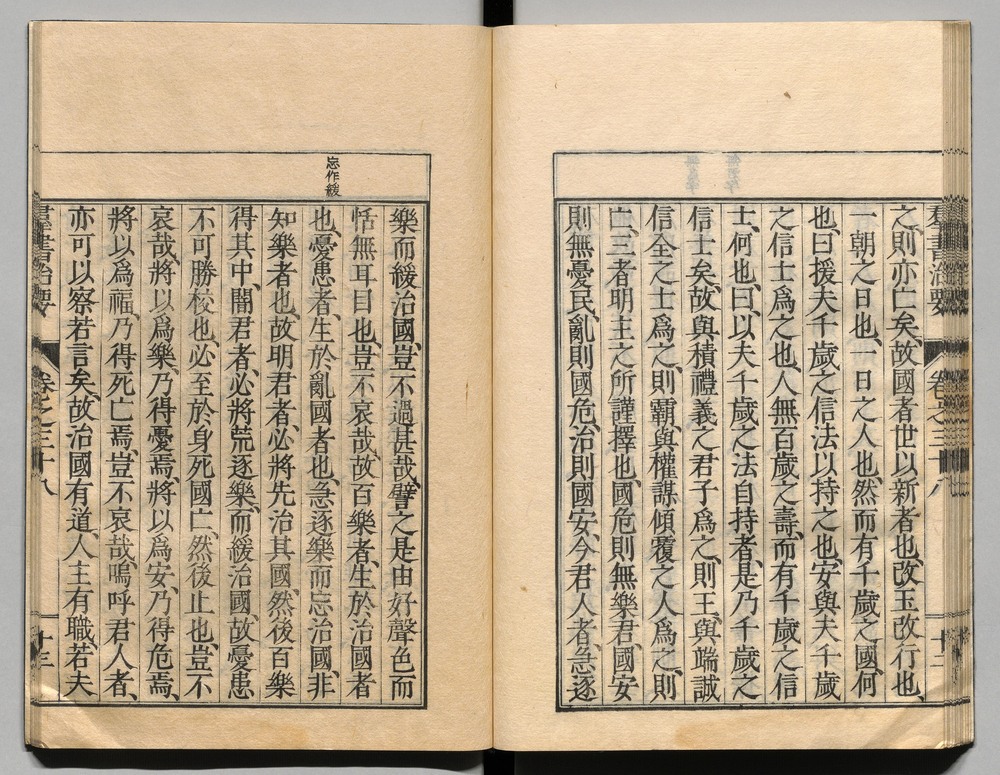 之則亦亡矣、故國者世以新者也、改玉改行也、
一朝之日也、一日之人也、然而有千歲之國、何
也、曰援夫千歲之信法以持之也、安與夫千歲
之信士爲之也、人無百歲之壽、而有千歲之信
士、何也、曰、以夫千歲之法自持者、是乃千歲之
信士矣、故與積禮義之君子爲之、則王、與端誠
信全之士爲之、則霸、與權謀傾覆之人爲之、則
亡、三者明主之所謹擇也、國危則無樂君、國安
則無憂民、亂則國危、治則國安、今君人者、急逐
群書治要
卷之三十八
忘作緩
樂而緩治國、豈不過甚哉、譬之是由好聲色而
恬無耳目也、豈不哀哉、故百樂者、生於治國者
也、憂患者、生於亂國者也、急逐樂而忘治國、非
知樂者也、故明君者、必將先治其國、然後百樂
得其中、闇君者、必將荒逐樂、而緩治國、故憂患
不可勝校也、必至於身死國亡、然後止也、豈不
哀哉、將以爲樂、乃得憂焉、將以爲安、乃得危焉、
將以爲福、乃得死亡焉、豈不哀哉、嗚呼君人者、
亦可以察若言矣、故治國有道、人主有職、若夫
群書治要
卷之三十八